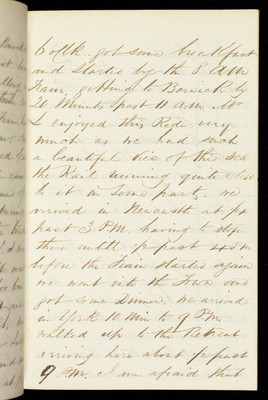 6 oClk. got some breakfast
and started by the 8 AM
train, getting to Berwick by
20 Minuts past 11 AM. Mr
L enjoyed this Ride very
much as we had such
a beautiful vice of the sea
the Rail running quite close
to it in some part, we
arrived in Newcastle at ½
past 3 PM. having to stop
there untill ½ past 4
before the Train started again
we went into the Town and
got some Dinner, we arrived
in York 10 Min to 9 PM.
walked up to the Retreat
arriving here about ½ past
9 PM. I am afraid that